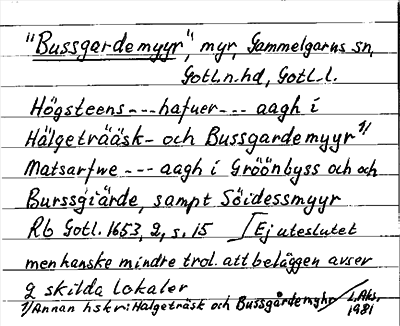 "Bussgardemyyr", myr, Gammelgarns sn,
Gotl.n.hd, Gotl.l.
Högsteens --- hafuer --- aagh i
Hälgeträäsk- och Bussgardemyyr 1/
Matsarfwe --- aagh i Gröönbyss och och
Burssgiärde, sampt Söidessmyyr
Rb Gotl. 1653, 2, s. 15 [Ej uteslutet
men kanske mindre trol. att beläggen avser
2 skilda lokaler
1/ Annan hskr: Halgeträsk och Bussgårdemyhr L.Aks, 1981